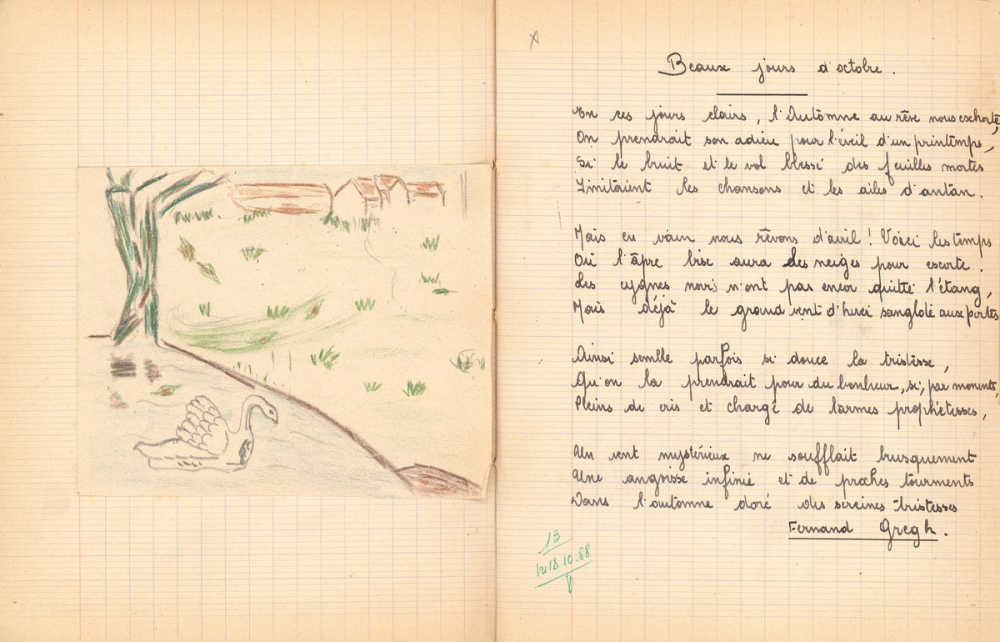 Beaux jours d'octobre.
En ces jours clairs, l'Automne au rêve nous exhorte,
On prendrait son adieu pour l'éveil d'un printemps,
Si le bruit et le vol blessé des feuilles mortes
Imitaient les chansons et les ailes d'antan.
Mais en vain nous rêvons d'avril ! Voici les temps
Où l'âpre bise aura des neiges pour escorte.
Les cygnes noirs n'ont pas encor quitté l'étang,
Mais déjà le grand vent d'hiver sanglote aux portes
Ainsi semble parfois si douce la tristesse,
Qu'on la prendrait pour du bonheur, si, par moments,
Pleins de cris et chargé de larmes prophétesses,
Un vent mystérieux ne soufflait brusquement
Une angoisse infinie et de proches tourments
Dans l'automne doré des sereines tristesses
Fernand Gregh.
13
Vu 18.10.88